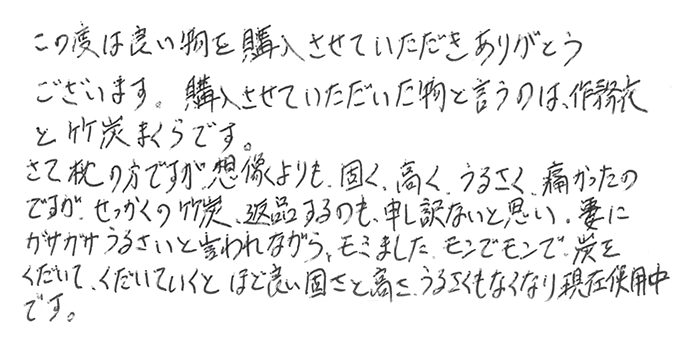 この度は良い物を購入させていただきありがとう
ございます。購入させていただいた物と言うのは、作務衣
と竹炭まくらです。
さて枕の方ですが、想像よりも、固く、高く、うるさく、痛かったの
ですが、せっかくの竹炭、返品するのも、申し訳ないと思い、妻に
ガサガサうるさいと言われながら、モミました。モンでモンで、炭を
くだいて、くだいていくと、ほど良い固さと高さ、うるさくもなくなり現在使用中
です。